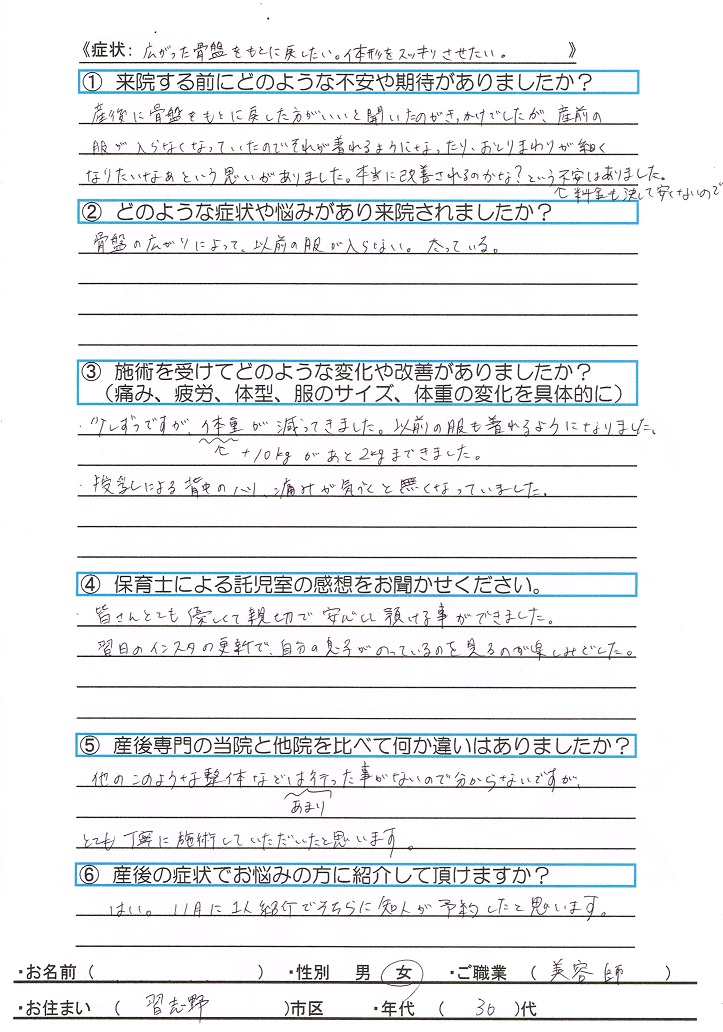 《症状: 広がった骨盤をもとに戻したい。体形をスッキリさせたい。 》
① 来院する前にどのような不安や期待がありましたか？
産後に骨盤をもとに戻した方がいいと聞いたのがきっかけでしたが、産前の
服が入らなくなっていたのでそれが着れるようになったり、おしりまわりが細く
なりたいなぁという思いがありました。本当に改善されるのかな？という不安はありました。
料金も決して安くないので
② どのような症状や悩みがあり来院されましたか？
骨盤の広がりによって、以前の服が入らない。太っている。
③ 施術を受けてどのような変化や改善がありましたか？
（痛み、疲労、体型、服のサイズ、体重の変化を具体的に）
・少しずつですが、体重が減ってきました。以前の服も着れるようになりました。
+10kgがあと2kgまできました。
・授乳による背中のハリ、痛みが気づくと無くなっていました。
④ 保育士による託児室の感想をお聞かせください。
・皆さんとても優しくて親切で安心して預ける事ができました。
習日のインスタの更新で、自分の息子がのっているのを見るのが楽しみでした。
⑤ 産後専門の当院と他院を比べて何か違いはありましたか？
他のこのような整体などは行った事がないので分からないですが、
あまり
とても丁寧に施術していただいたと思います。
⑥ 産後の症状でお悩みの方に紹介して頂けますか？
はい。11月に1人紹介でそちらに知人が予約したと思います。
・お名前（ ） ・性別 男 女 ・ご職業 （ 美容師 ）
・お住まい （ 習志野 ）市区 ・年代 （ 30 ）代